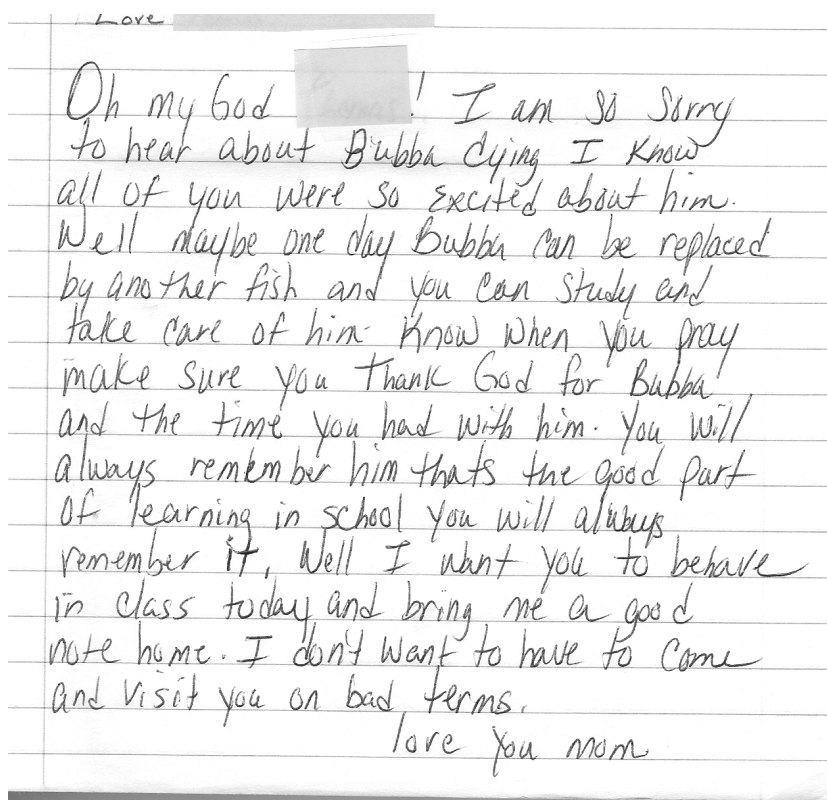 Love
Oh my God ! I am so sorry
to hear about Bubba dying I know
all of you were so excited about him.
Well maybe one day Bubba can be replaced
by another fish and you can study and
take care of him. Know when you pray
make sure you thank God for Bubba
and the time you had with him. You will
always remember him thats the good part
of learning in school you will always
remember it, Well I want you to behave
in class today and bring me a good
note home. I don't want to have to come
and visit you on bad terms.
love you mom